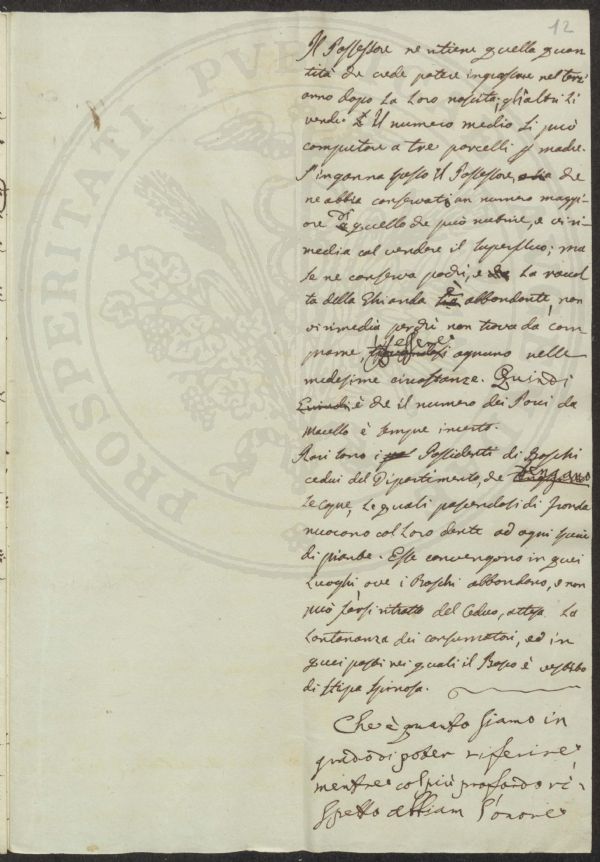 12
Il Possessore ne ritiene quella quan
tità che crede potere ingrassare nel terz'
anno dopo la loro nascita; gli altri li
vende. Il numero medio si può
computare a tre porcelli p madre.
S'inganna spesso il Possessore, che
ne abbia conservati un numero maggi-
ore di quello che può nutrire, e vi ri-
media col vendere il superfluo; ma
se ne conserva pochi, e la raccol
ta della Ghianda è abbondante, non
vi rimedia perchè non trova da com
prarne, essere ognuno nelle
medesime circostanze. Quindi
è che il numero dei Porci da
Macello è sempre incerto.
Rari sono i Possidenti di Boschi
cedui del Dipartimento, che tengano
le quali pascendosi di fronda
nuocono col loro dente ad ogni specie
di piante. Esse convengono in quei
Luoghi ove i Boschi abbondano, e non
può farsi ritratto del Ceduo, attesa la
Lontananza dei consumatori, ed in
quei posti nei quali il Bosco è vestito
di stipa spinosa.
Che è quanto siamo in
grado di poter riferire
mentre col più profondo ri-
spetto abbiam l'onore
PROSPERITATI PVBLICAE